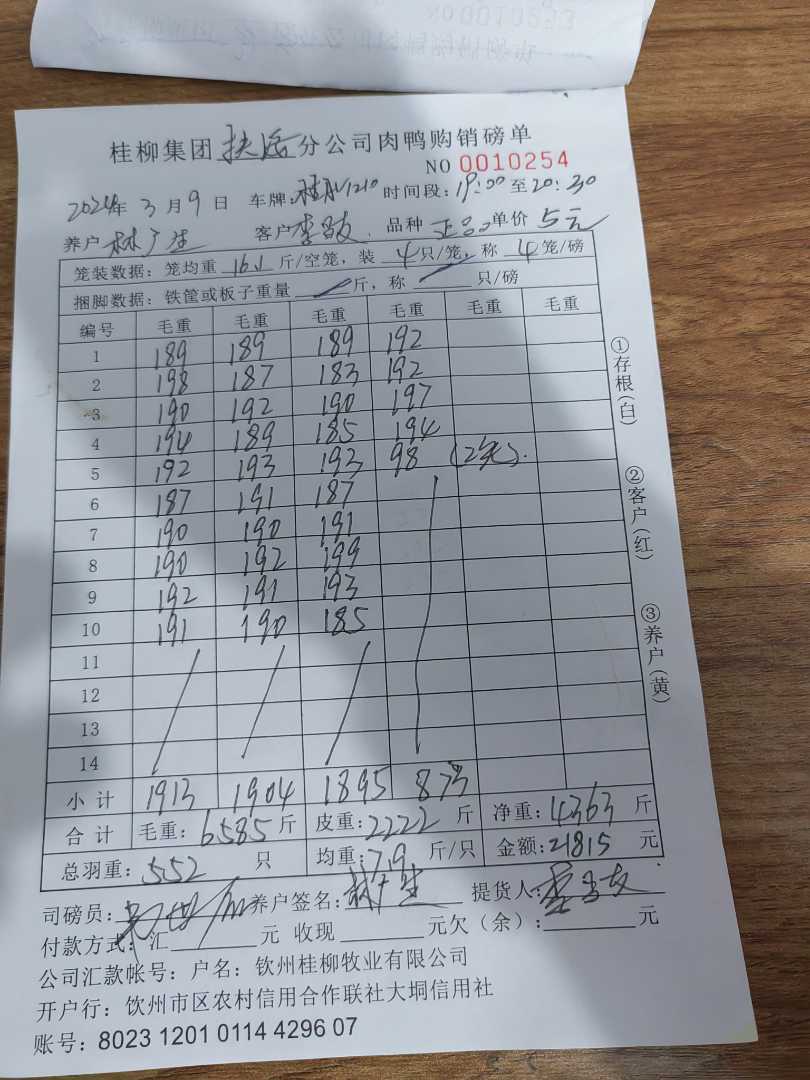 桂柳集团扶绥分公司肉鸭购销磅单
NO 0010254
2024年3月9日 车牌: 时间段:19:00至20:30
养户 林广生 客户 品种 正品 单价 5元
笼装数据:笼均重 16.1 斤/空笼,装 4只/笼,称 4笼/磅
捆脚数据:铁筐或板子重量 斤,称 只/磅
编号 毛重 毛重 毛重 毛重 毛重 毛重
1 189 189 189 192
2 198 187 183 192
3 190 192 190 197
4 194 189 185 194
5 192 193 193 98 (2笼).
6 187 191 187
7 190 190 191
8 190 192 199
9 192 191 193
10 191 190 185
11
12
13
14
小计 1913 1904 1895 873
合计 毛重:6585斤 皮重:2222斤 净重:4363斤
总羽重:552 只 均重:7.9 斤/只 金额:21815 元
司磅员: 养户签名:林广生 提货人:
付款方式:汇 元 收现 元欠(余): 元
公司汇款帐号:户名:钦州桂柳牧业有限公司
开户行:钦州市区农村信用合作联社大垌信用社
账号:8023 1201 0114 4296 07
①存根(白)
②客户(红)
③养户(黄)